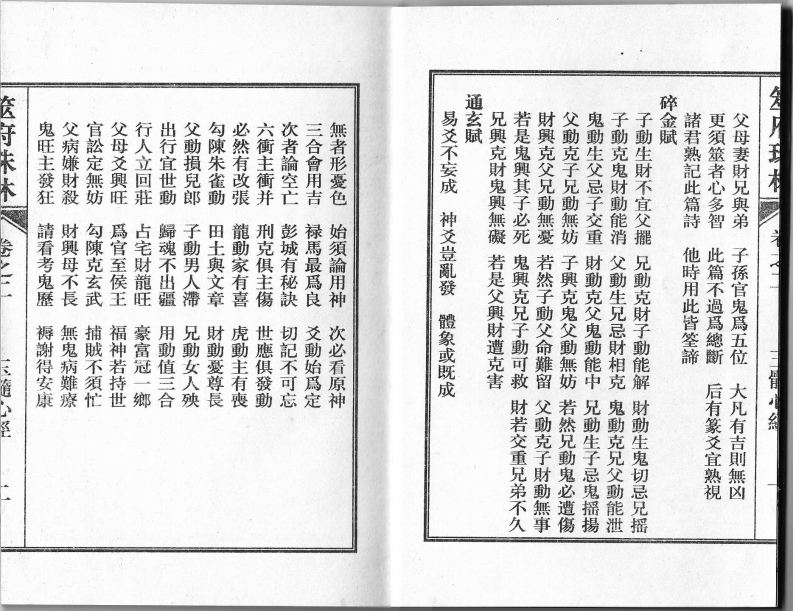 父母妻財兄與弟　子孫官鬼爲五位　大凡有吉則無凶
更須筮者心多智　此篇不過爲總斷　后有篆爻宜熟視
諸君熟記此篇詩　他時用此皆筌諦
碎金賦
子動生財不宜父擺　兄動克財子動能解　財動生鬼切忌兄摇
子動克鬼財動能消　父動生兄忌財相克　鬼動克兄父動能泄
鬼動生父忌子交重　財動克父鬼動能中　兄動生子忌鬼摇揚
父動克子兄動無妨　子興克鬼父動無妨　若然兄動鬼必遭傷
財興克父兄動無憂　若然子動父命難留　父動克子財動無事
若是鬼興其子必死　鬼興克兄子動可救　財若交重兄弟不久
兄興克財鬼興無礙　若是父興財遭克害
通玄賦
易爻不妄成　神爻豈亂發　體象或既成
無者形憂色　始須論用神　次必看原神
三合會用吉　禄馬最爲良　爻動始爲定
次者論空亡　彭城有秘訣　切記不可忘
六衝主衝并　刑克俱主傷　世應俱發動
必然有改張　龍動家有喜　虎動主有喪
勾陳朱雀動　田土與文章　財動憂尊長
父動損兒郎　子動男人滯　兄動女人殃
出行宜世動　歸魂不出疆　用動值三合
行人立回莊　占宅財龍旺　豪富冠一鄉
父母爻興旺　爲官至侯王　福神若持世
官訟定無妨　勾陳克玄武　捕賊不須忙
父病嫌財殺　財興母不長　無鬼病難療
鬼旺主發狂　請看考鬼歷　禱謝得安康
筮府珠林　卷之十　玉髓心經　二